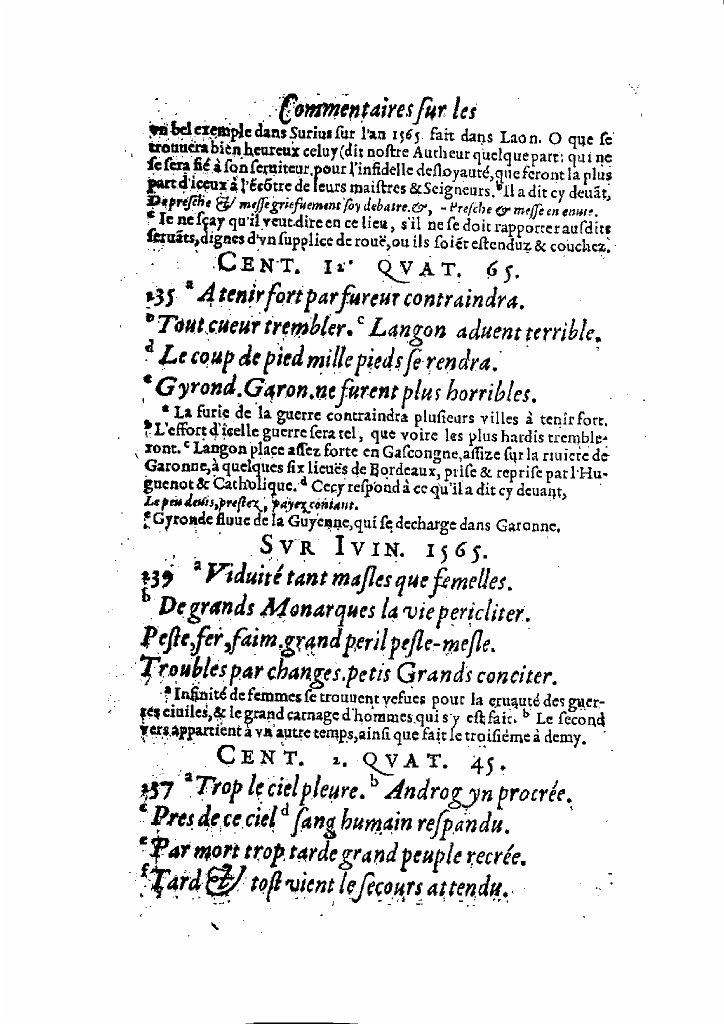 Commentaires ſur les
vn bel exemple dans Surius ſur l'an 1565 fait dans Laon. O que ſe
trouuera bien heureux celuy (dit noſtre Autheur quelque part) qui ne
ſe ſera fié à ſon ſeruiteur, pour l'infidelle deſloyauté, que feront la plus
part d'iceux à l'ẽcõtre de leurs maiſtres & Seigneurs. b Il a dit cy deuãt,
De preſche & meſſe griefuement ſoy debatre. &, - Preſche & meſſe en enuie.
c Ie ne ſçay qu'il veut dire en ce lieu, s'il ne ſe doit rapporter auſdits
ſeruãts, dignes d'vn ſupplice de rouë, ou ils ſoiẽt eſtenduz & couchez.
CENT. 12. QVAT. 65.
235 a A tenir fort par fureur contraindra.
b Tout cueur trembler. c Langon aduent terrible.
d Le coup de pied mille pieds ſe rendra.
e Gyrond. Garon. ne furent plus horribles.
a La furie de la guerre contraindra pluſieurs villes à tenir fort.
b L'effort d'icelle guerre ſera tel, que voire les plus hardis tremble-
ront. c Langon place aſſez forte en Gaſcongne, aſſize ſur la riuiere de
Garonne, à quelques ſix lieuës de Bordeaux, priſe & repriſe par l'Hu-
guenot & Catholique. d Cecy reſpond à ce qu'il a dit cy deuant,
Le peu deuis, preſtez, payez contant.
e Gyronde fluue de la Guyenne, qui ſe decharge dans Garonne.
SVR IVIN. 1565.
239 a Viduité tant maſles que femelles.
b De grands Monarques la vie pericliter.
Peſte, fer, faim. grand peril peſle-meſle.
Troubles par changes. petis Grands conciter.
a Infinité de femmes ſe trouuent vefues pour la cruauté des guer-
res ciuiles, & le grand carnage d'hommes qui s'y eſt fait. b Le second
vers appartient à vn autre temps, ainſi que fait le troiſiéme à demy.
CENT. 2. QVAT. 45.
237 a Trop le ciel pleure. b Androgyn procrée.
c Pres de ce ciel d ſang humain reſpandu.
e Par mort trop tarde grand peuple recrée.
f Tard & toſt vient le ſecours attendu.